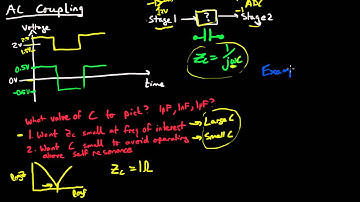 AC Coupling
Voltage
2.5v
2v
0.5V
0V
-0.5V
time
1.2V
ADC
Stage 1
?
Stage 2
Zc = 1/jωc
Exam
What value of C to pick? 1pF, 1nF, 1µF?
1. Want Zc small at freq of interest → Large C
2. Want C small to avoid operating → Small C
above self resonance
Zc = 1Ω
log Z
log f